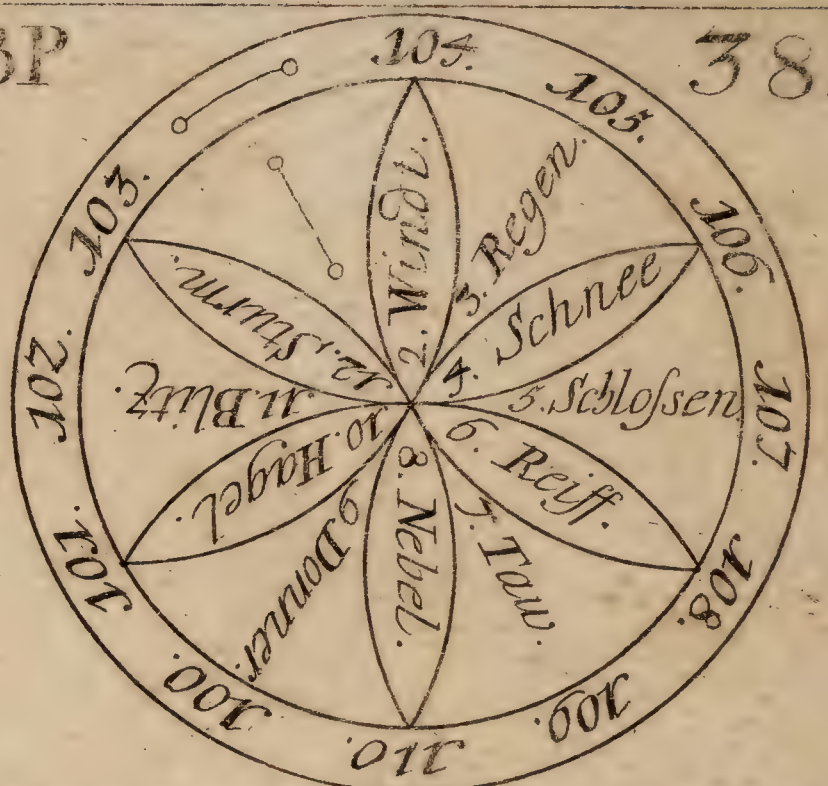 BP
38
104.
105.
106.
107.
108.
109.
110.
100.
101.
102.
103.
2. Windt.
3. Regen.
4. Schnee
5. Schloſsen
6. Reiff.
7. Taw.
8. Nebel.
9. Donner.
10. Hagel.
11. Blitz.
12. Sturm.